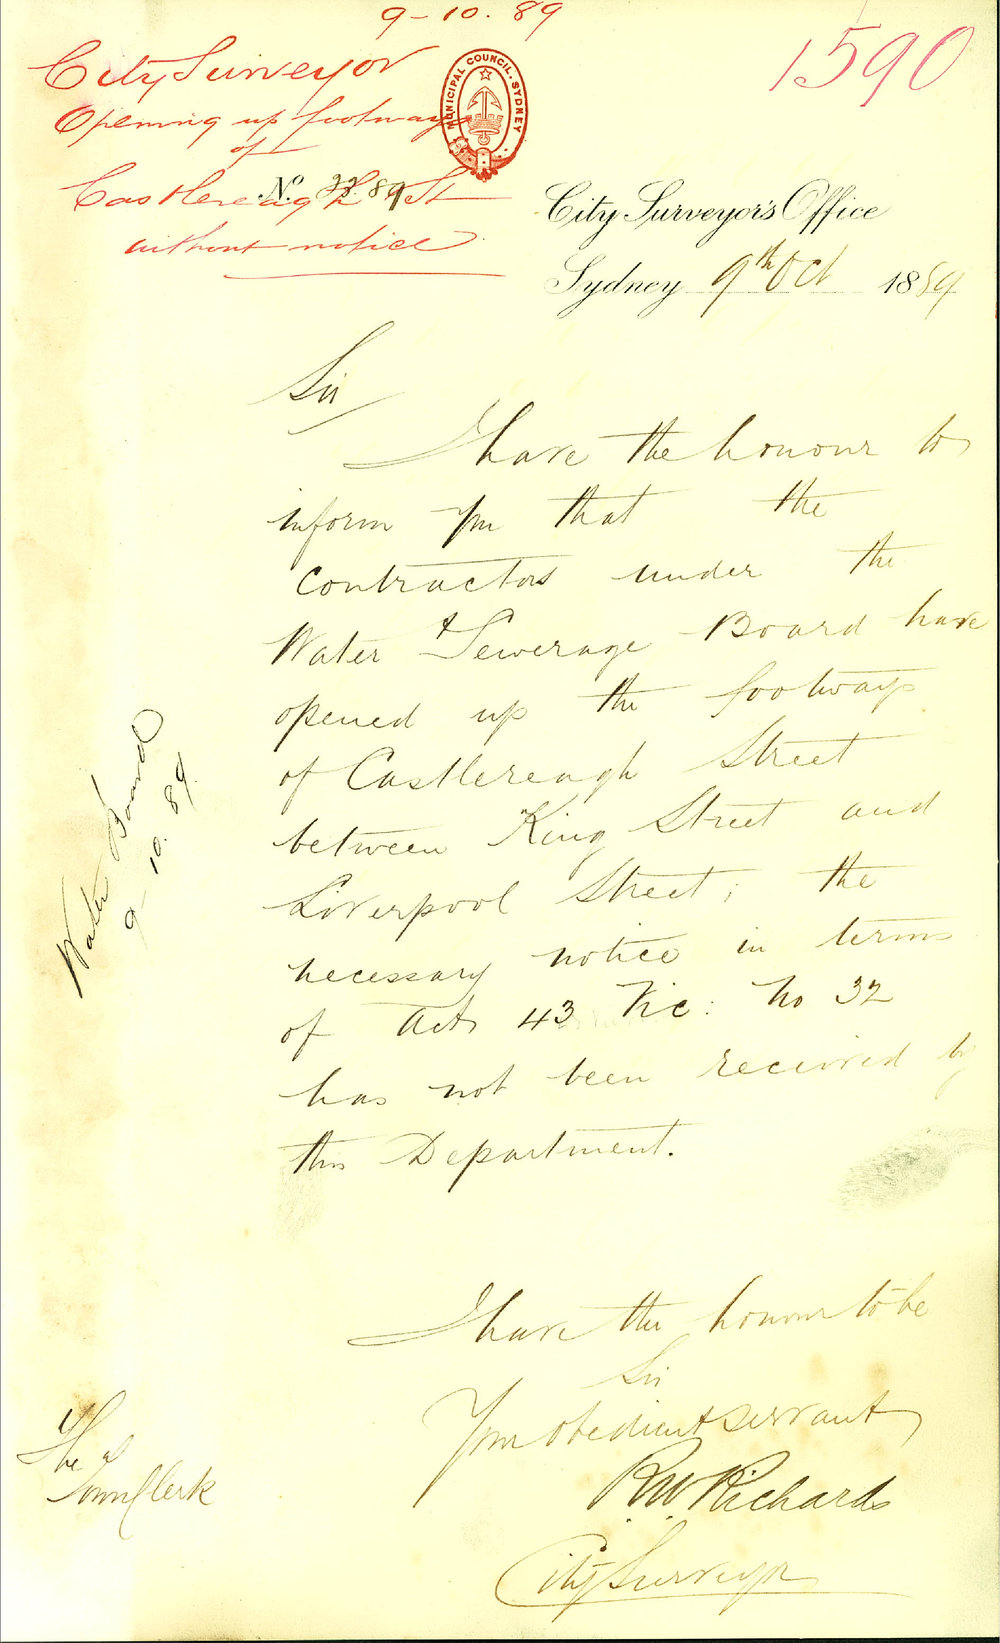 9-10.89
1590
City Surveyor
Opening up footways
of
Castlereagh St
without notice
MUNICIPAL COUNCIL. SYDNEY
No. 89
City Surveyor's Office
Sydney 9th Oct 1889
Sir
I have the honour to
inform you that the
Contractors under the
Water & Sewerage Board have
opened up the footways
of Castlereagh Street
between King Street and
Liverpool Street; the
necessary notice in terms
of Act 43 Vic: No 32
has not been received by
this Department.
Water Board
9-10.89
I have the honour to be
Sir
Your obedient servant
R.W. Richards
City Surveyor
The
Town Clerk